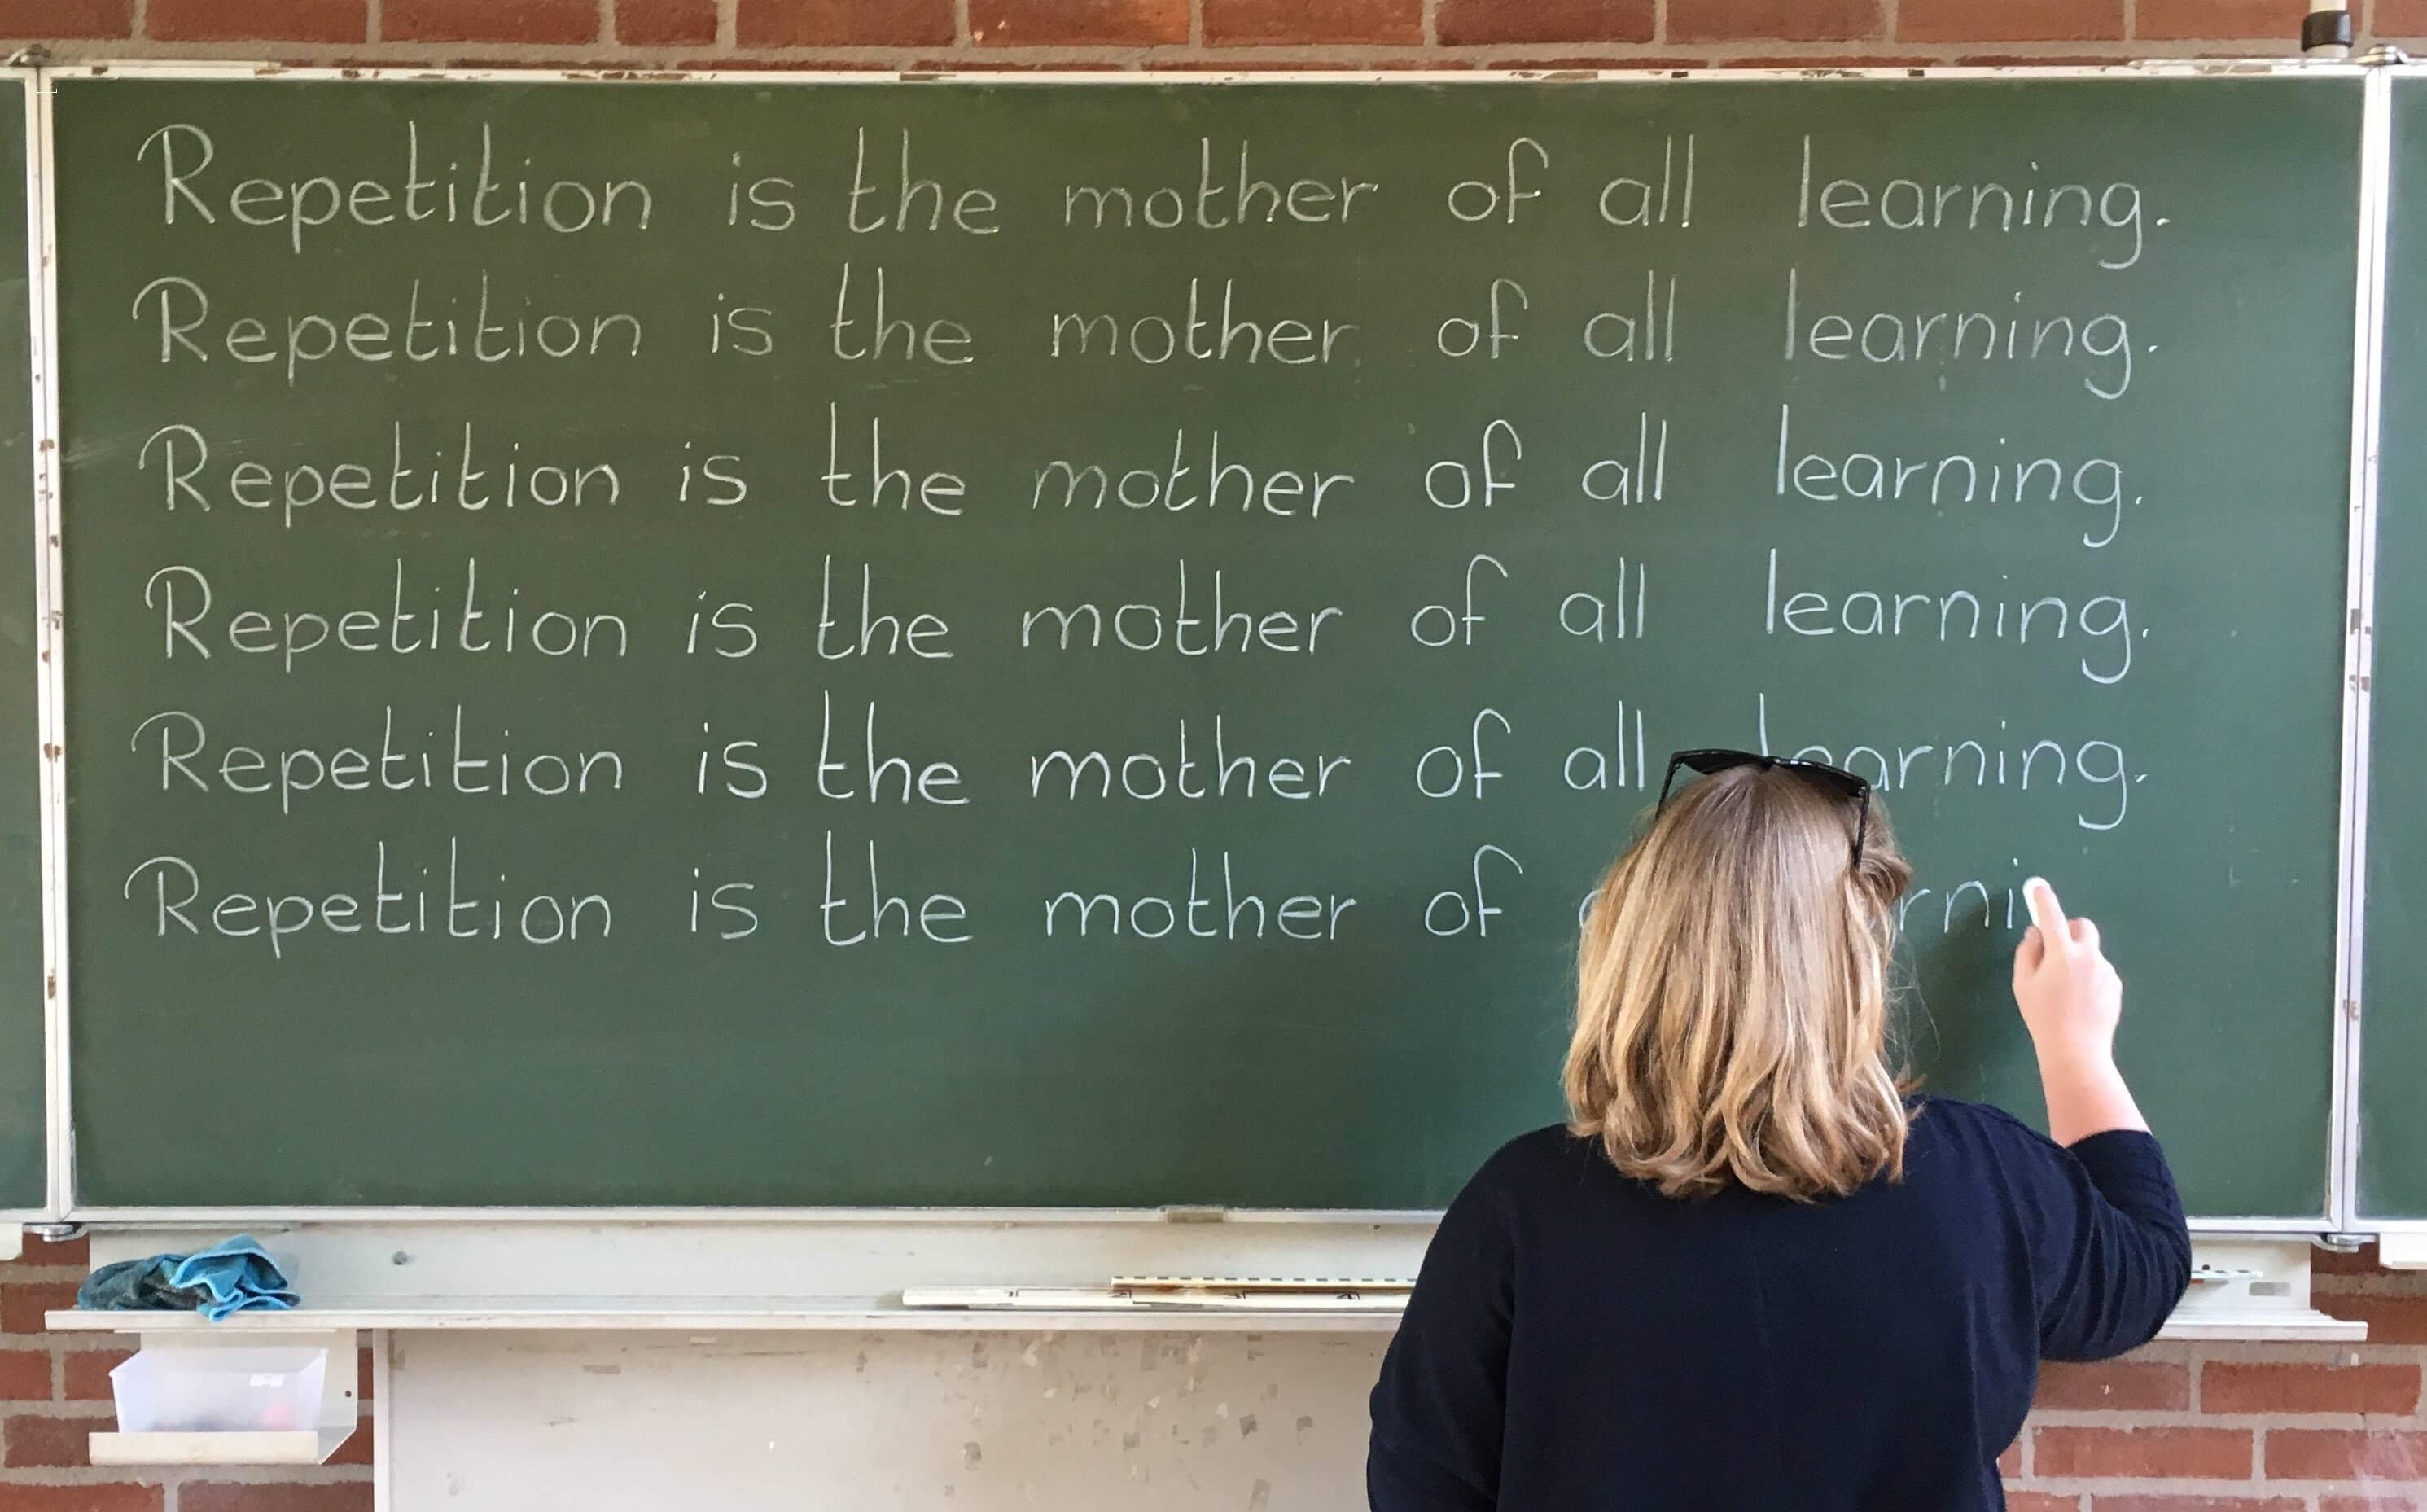 Repetition is the mother of all learning.
Repetition is the mother of all learning.
Repetition is the mother of all learning.
Repetition is the mother of all learning.
Repetition is the mother of all learning.
Repetition is the mother of